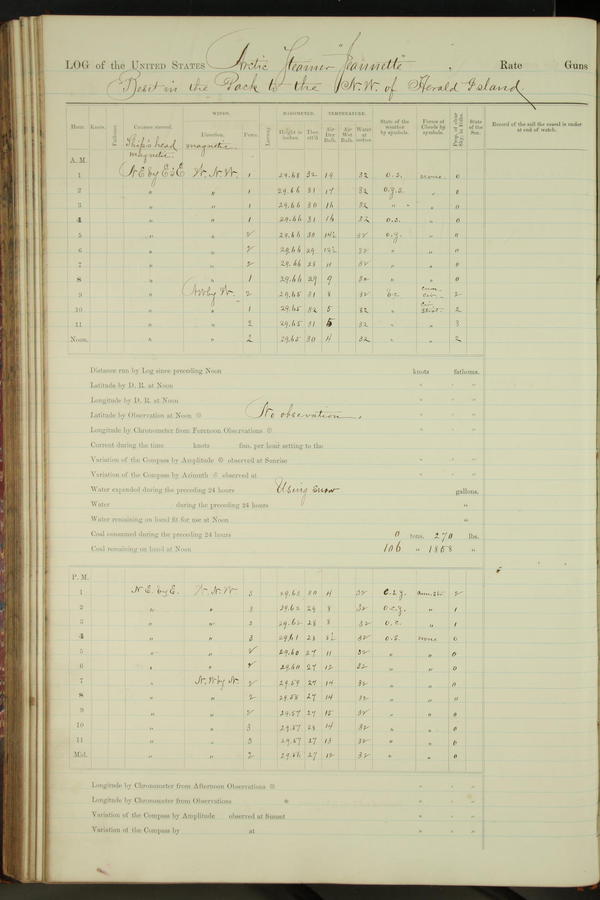 LOG of the UNITED STATES Arctic Steamer "Jeannette", Rate Guns
Beset in the Pack to the N.W. of Herald Island.
WINDS. BAROMETER. TEMPERATURE.
Hour. Knots. Fathoms. Courses steered. Direction. Force. Leeway. Height in inches. Ther. att'd Air Dry Bulb. Air Wet Bulb. Water at surface State of the weather by symbols. Forms of Clouds by symbols. Prop. of clear Sky in 10ths. State of the Sea. Record of the sail the vessel is under at end of watch.
Ship's head magnetic. magnetic
A. M.
1 NE by E½E W.N.W. 1 29.68 32 19 32 o.s. none 0
2 " " 1 29.66 31 17 32 o.g.s. " 0
3 " " 1 29.66 30 16 32 " " " 0
4 " " 1 29.66 31 16 32 o.s. " 0
5 " " 2 29.66 30 14½ 32 o.g. " 0
6 " " 2 29.66 29 12½ 32 " " 0
7 " " 2 29.66 28 11 32 " " 0
8 " " 1 29.66 29 9 32 " " 0
9 " NW by W. 2 29.65 31 8 32 b.c. 2
10 " " 1 29.65 32 5 32 " 2
11 " " 2 29.65 31 5 32 " " 3
Noon. " " 2 29.65 30 4 32 " " 2
Distance run by Log since preceding Noon knots fathoms.
Latitude by D. R. at Noon " " "
Longitude by D. R. at Noon " " "
Latitude by Observation at Noon No observation. " " "
Longitude by Chronometer from Forenoon Observations " " "
Current during the time knots fms. per hour setting to the
Variation of the Compass by Amplitude observed at Sunrise " " "
Variation of the Compass by Azimuth observed at " " "
Water expended during the preceding 24 hours Using snow gallons.
Water during the preceding 24 hours "
Water remaining on hand fit for use at Noon "
Coal consumed during the preceding 24 hours 0 tons. 270 lbs.
Coal remaining on hand at Noon 106 " 1868 "
P. M.
1 N.E. by E. W.N.W 3 29.63 30 4 32 2
2 " " 3 29.62 29 8 32 o.c.g. " 1
3 " " 3 29.62 28 8 32 o.c. " 1
4 " " 3 29.61 28 8½ 32 o.s. none 0
5 " " 2 29.60 27 11 32 " " 0
6 " " 2 29.60 27 12 32 " " 0
7 " N.W by N. 2 29.59 27 14 32 " " 0
8 " " 2 29.58 27 14 32 " " 0
9 " " 2 29.57 27 15 32 " " 0
10 " " 3 29.57 28 14 32 " " 0
11 " " 3 29.57 27 13 32 " " 0
Mid. " " 2 29.56 27 12 32 " " 0
Longitude by Chronometer from Afternoon Observations " " "
Longitude by Chronometer from Observations " " "
Variation of the Compass by Amplitude observed at Sunset " " "
Variation of the Compass by at " " "